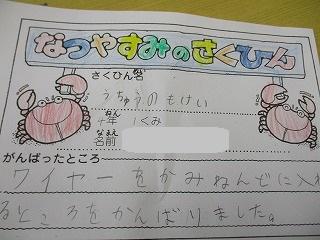 なつやすみのさくひん
さくひん名
うちゅうのもけい
4年 1くみ
ねん
なまえ
名前
がんばったところ
ワイヤーをかみねんどに入れ
るところをがんばりました。